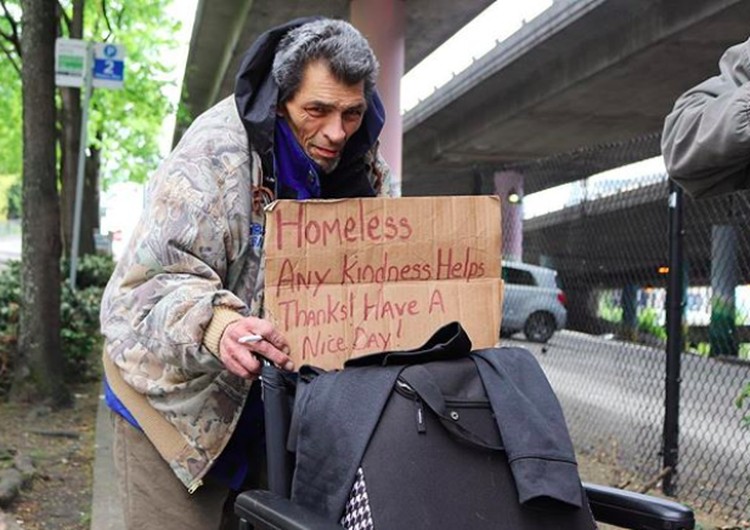 2
Homeless
Any Kindness Helps
Thanks! Have A
Nice Day!